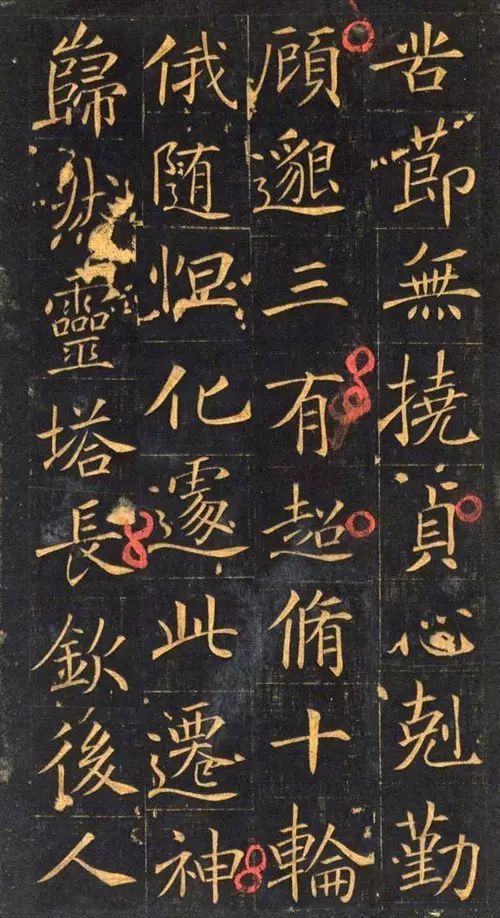 苦節無撓貞心剋勤
顧邈三有超脩十輪
俄隨怛化遽此遷神
巋然靈塔長欽後人